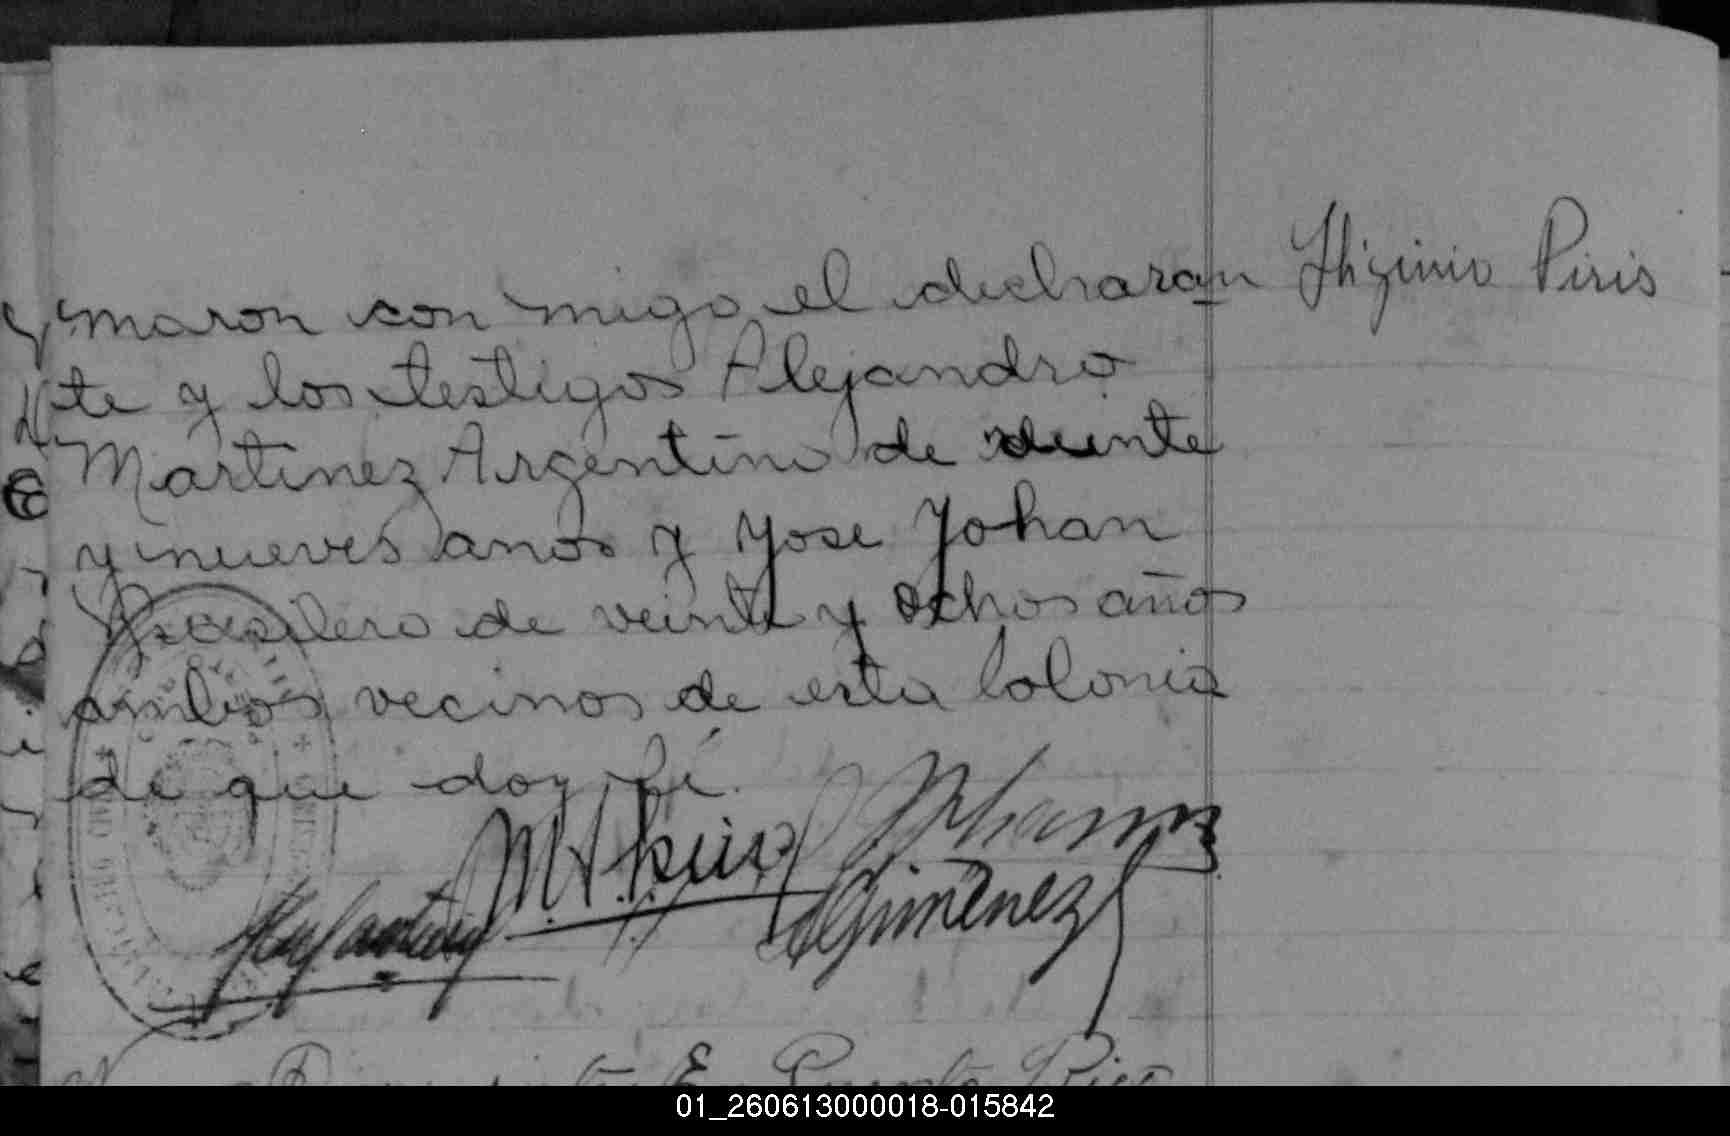 maron con migo el declaran
te y los testigos Alejandro
Martinez Argentino de veinte
y nueves anos y Yose Yohan
Bracsilero de veinte y ochos años
ambos vecinos de esta Colonia
de que doy fé.
Higinio Piris
Gimenez
01_260613000018-015842